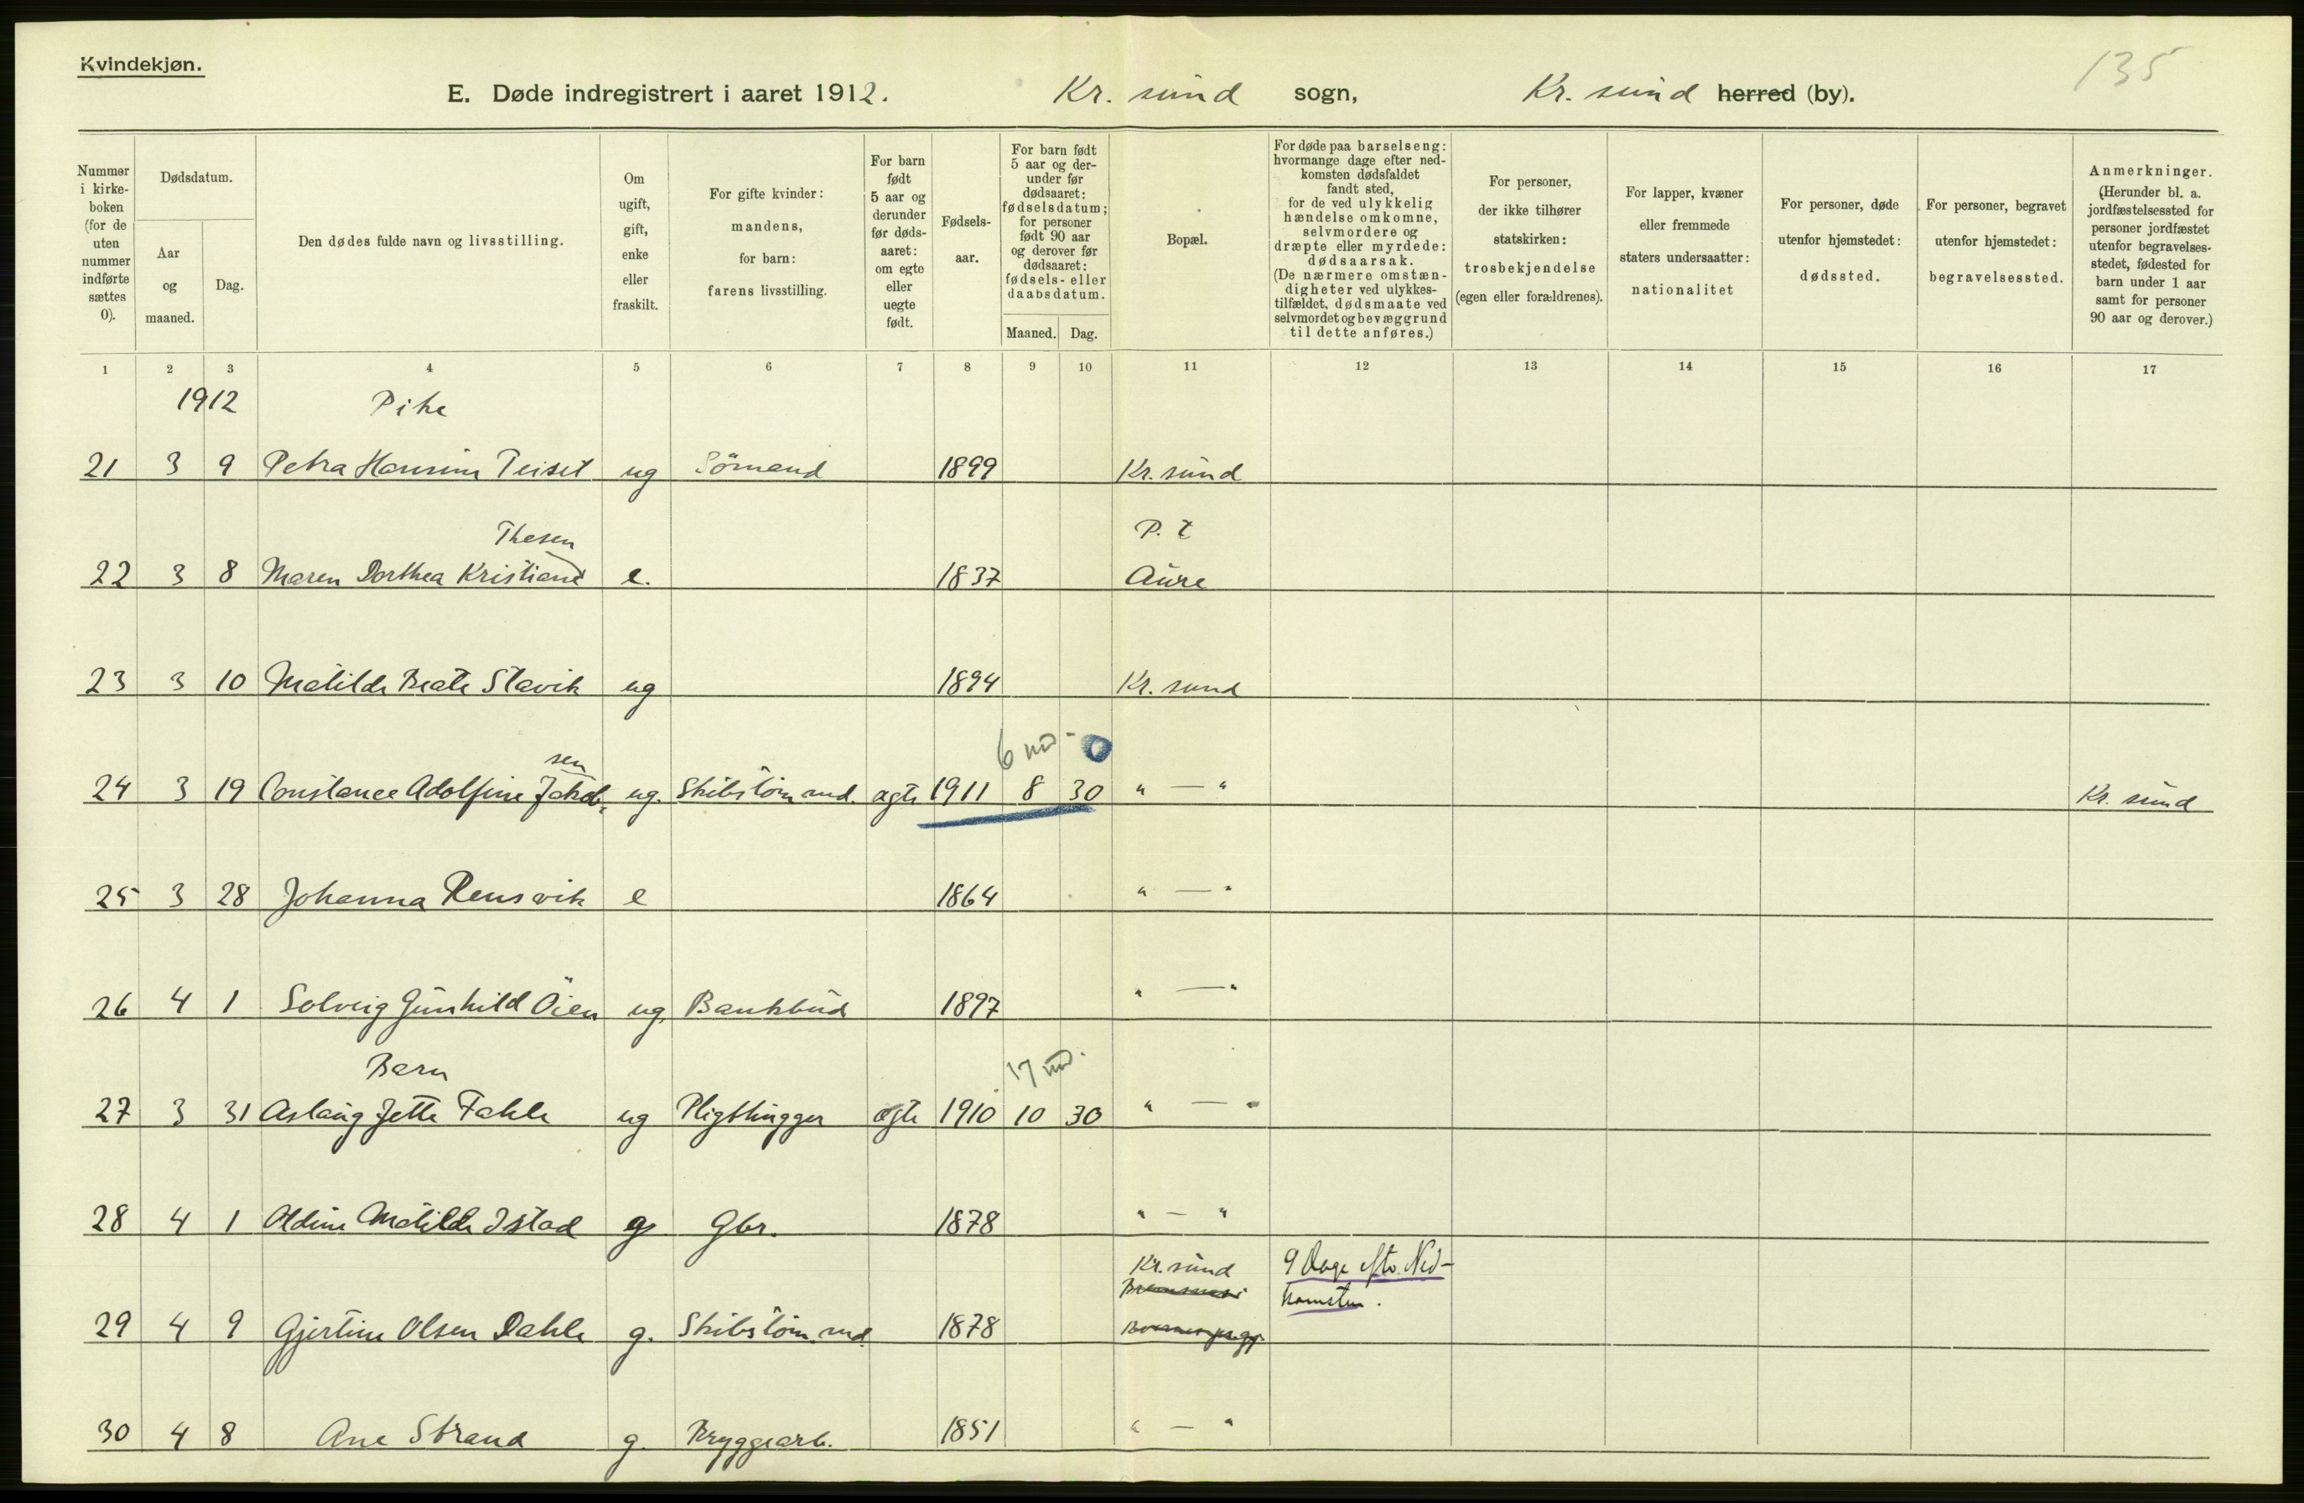 Kvindekjøn.
135
E. Døde indregistrert i aaret 1912. Kr. sund sogn, Kr. sund herred (by).
Nummer i kirkeboken (for de uten nummer indførte sættes 0).
Dødsdatum.
Aar og maaned.
Dag.
Den dødes fulde navn og livsstilling.
Om ugift, gift, enke eller fraskilt.
For gifte kvinder: mandens, for barn: farens livsstilling.
For barn født 5 aar og derunder før dødsaaret: om egte eller uegte født.
Fødselsaar.
For barn født 5 aar og derunder før dødsaaret: fødselsdatum; for personer født 90 aar og derover før dødsaaret: fødsels- eller daabsdatum.
Maaned. Dag.
Bopæl.
For døde paa barselseng: hvormange dage efter nedkomsten dødsfaldet fandt sted, for de ved ulykkelig hændelse omkomne, selvmordere og dræpte eller myrdede: dødsaarsak. (De nærmere omstændigheter ved ulykkestilfældet, dødsmaate ved selvmordet og bevæggrund til dette anføres.)
For personer, der ikke tilhører statskirken: trosbekjendelse (egen eller forældrenes).
For lapper, kvæner eller fremmede staters undersaatter: nationalitet
For personer, døde utenfor hjemstedet: dødssted.
For personer, begravet utenfor hjemstedet: begravelsessted.
Anmerkninger. (Herunder bl. a. jordfæstelsessted for personer jordfæstet utenfor begravelsesstedet, fødested for barn under 1 aar samt for personer 90 aar og derover.)
1 2 3 4 5 6 7 8 9 10 11 12 13 14 15 16 17
1912 Pike
21 3 9 Petra Hansine Teiset ug Sömand 1899 Kr. sund
Thesen P. t
22 3 8 Maren Dorthea Kristiane e. 1837 Aure
23 3 10 Matilde Beate Stavik ug 1894 Kr. sund
sen 6 md - 0
24 3 19 Constance Adolfine Jakob- ug. Skibstöm.md. egte 1911 8 30 " — " Kr. sund
25 3 28 Johanna Rensvik e 1864 " — "
26 4 1 Solveig Gunhild Öien ug. Bankbud 1897 " — "
Barn 17 md.
27 3 31 Aslaug Jette Fahle ug Pligthugger egte 1910 10 30 " — "
28 4 1 Oldine Matilde Istad g Gbr. 1878 " — "
Kr. sund 9 Dage eft. Ned-
komsten.
29 4 9 Gjertine Olsen Dahle g. Skibstöm.md. 1878
30 4 8 Ane Strand g. Bryggearb. 1851 " — "